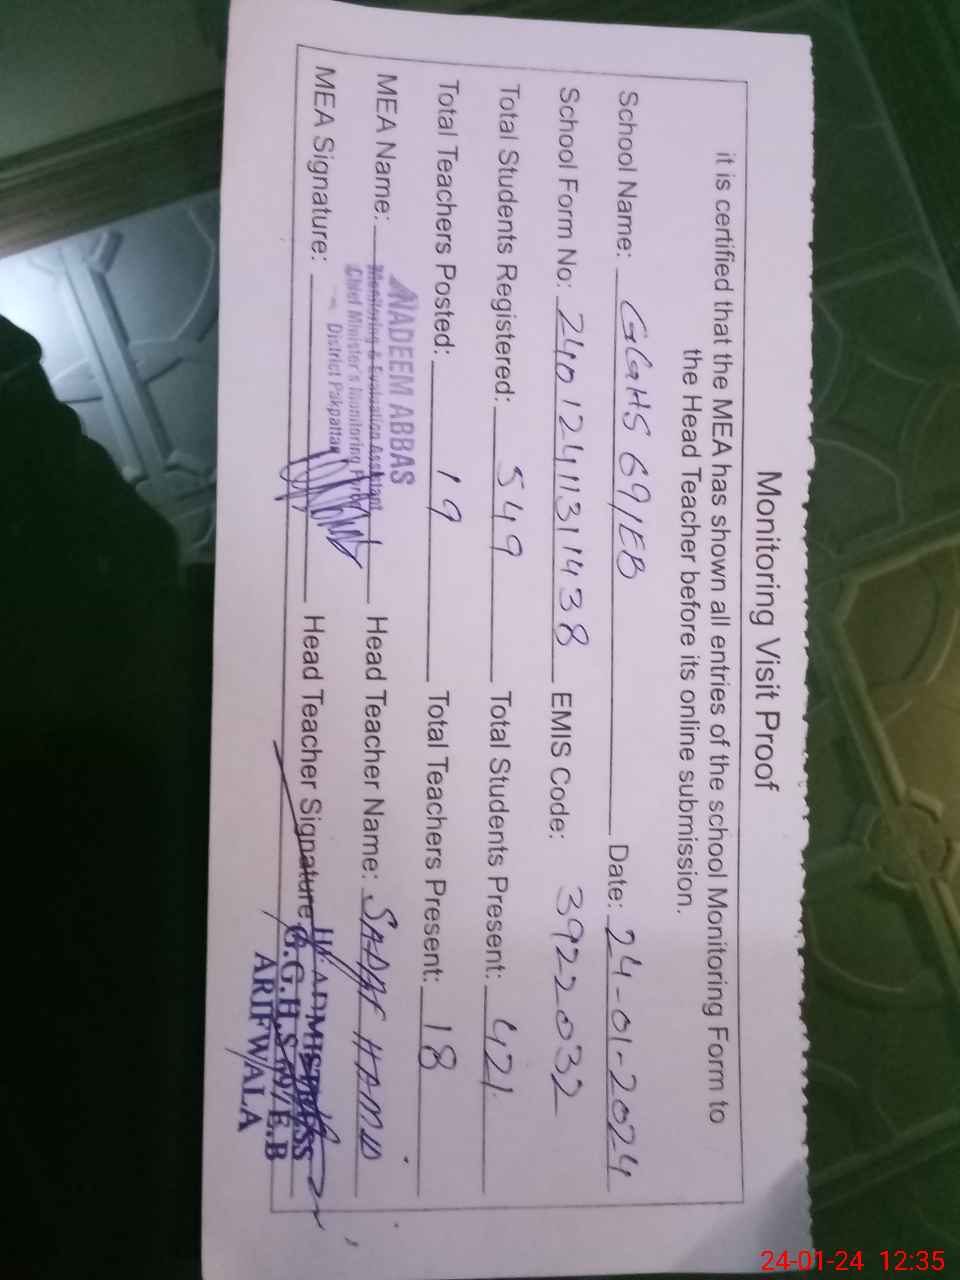 Monitoring Visit Proof
it is certified that the MEA has shown all entries of the school Monitoring Form to
the Head Teacher before its online submission.
School Name: GGHS 69/EB Date: 24-01-2024
School Form No: 240124113111438 EMIS Code: 3922032
Total Students Registered: 549 Total Students Present: 421
Total Teachers Posted: 19 Total Teachers Present: 18
MEA Name: Head Teacher Name: SADAF HAMID
NADEEM ABBAS
Monitoring & Evaluation Assistant
Chief Minister's Monitoring Force
District Pakpattan
MEA Signature: Head Teacher Signature
HEADMISTRESS
G.G.H.S 69/E.B
ARIFWALA
24-01-24 12:35